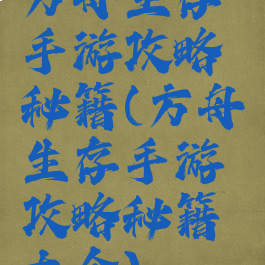 方舟生存
手游攻略
秘籍(方舟
生存手游
攻略秘籍
大全)